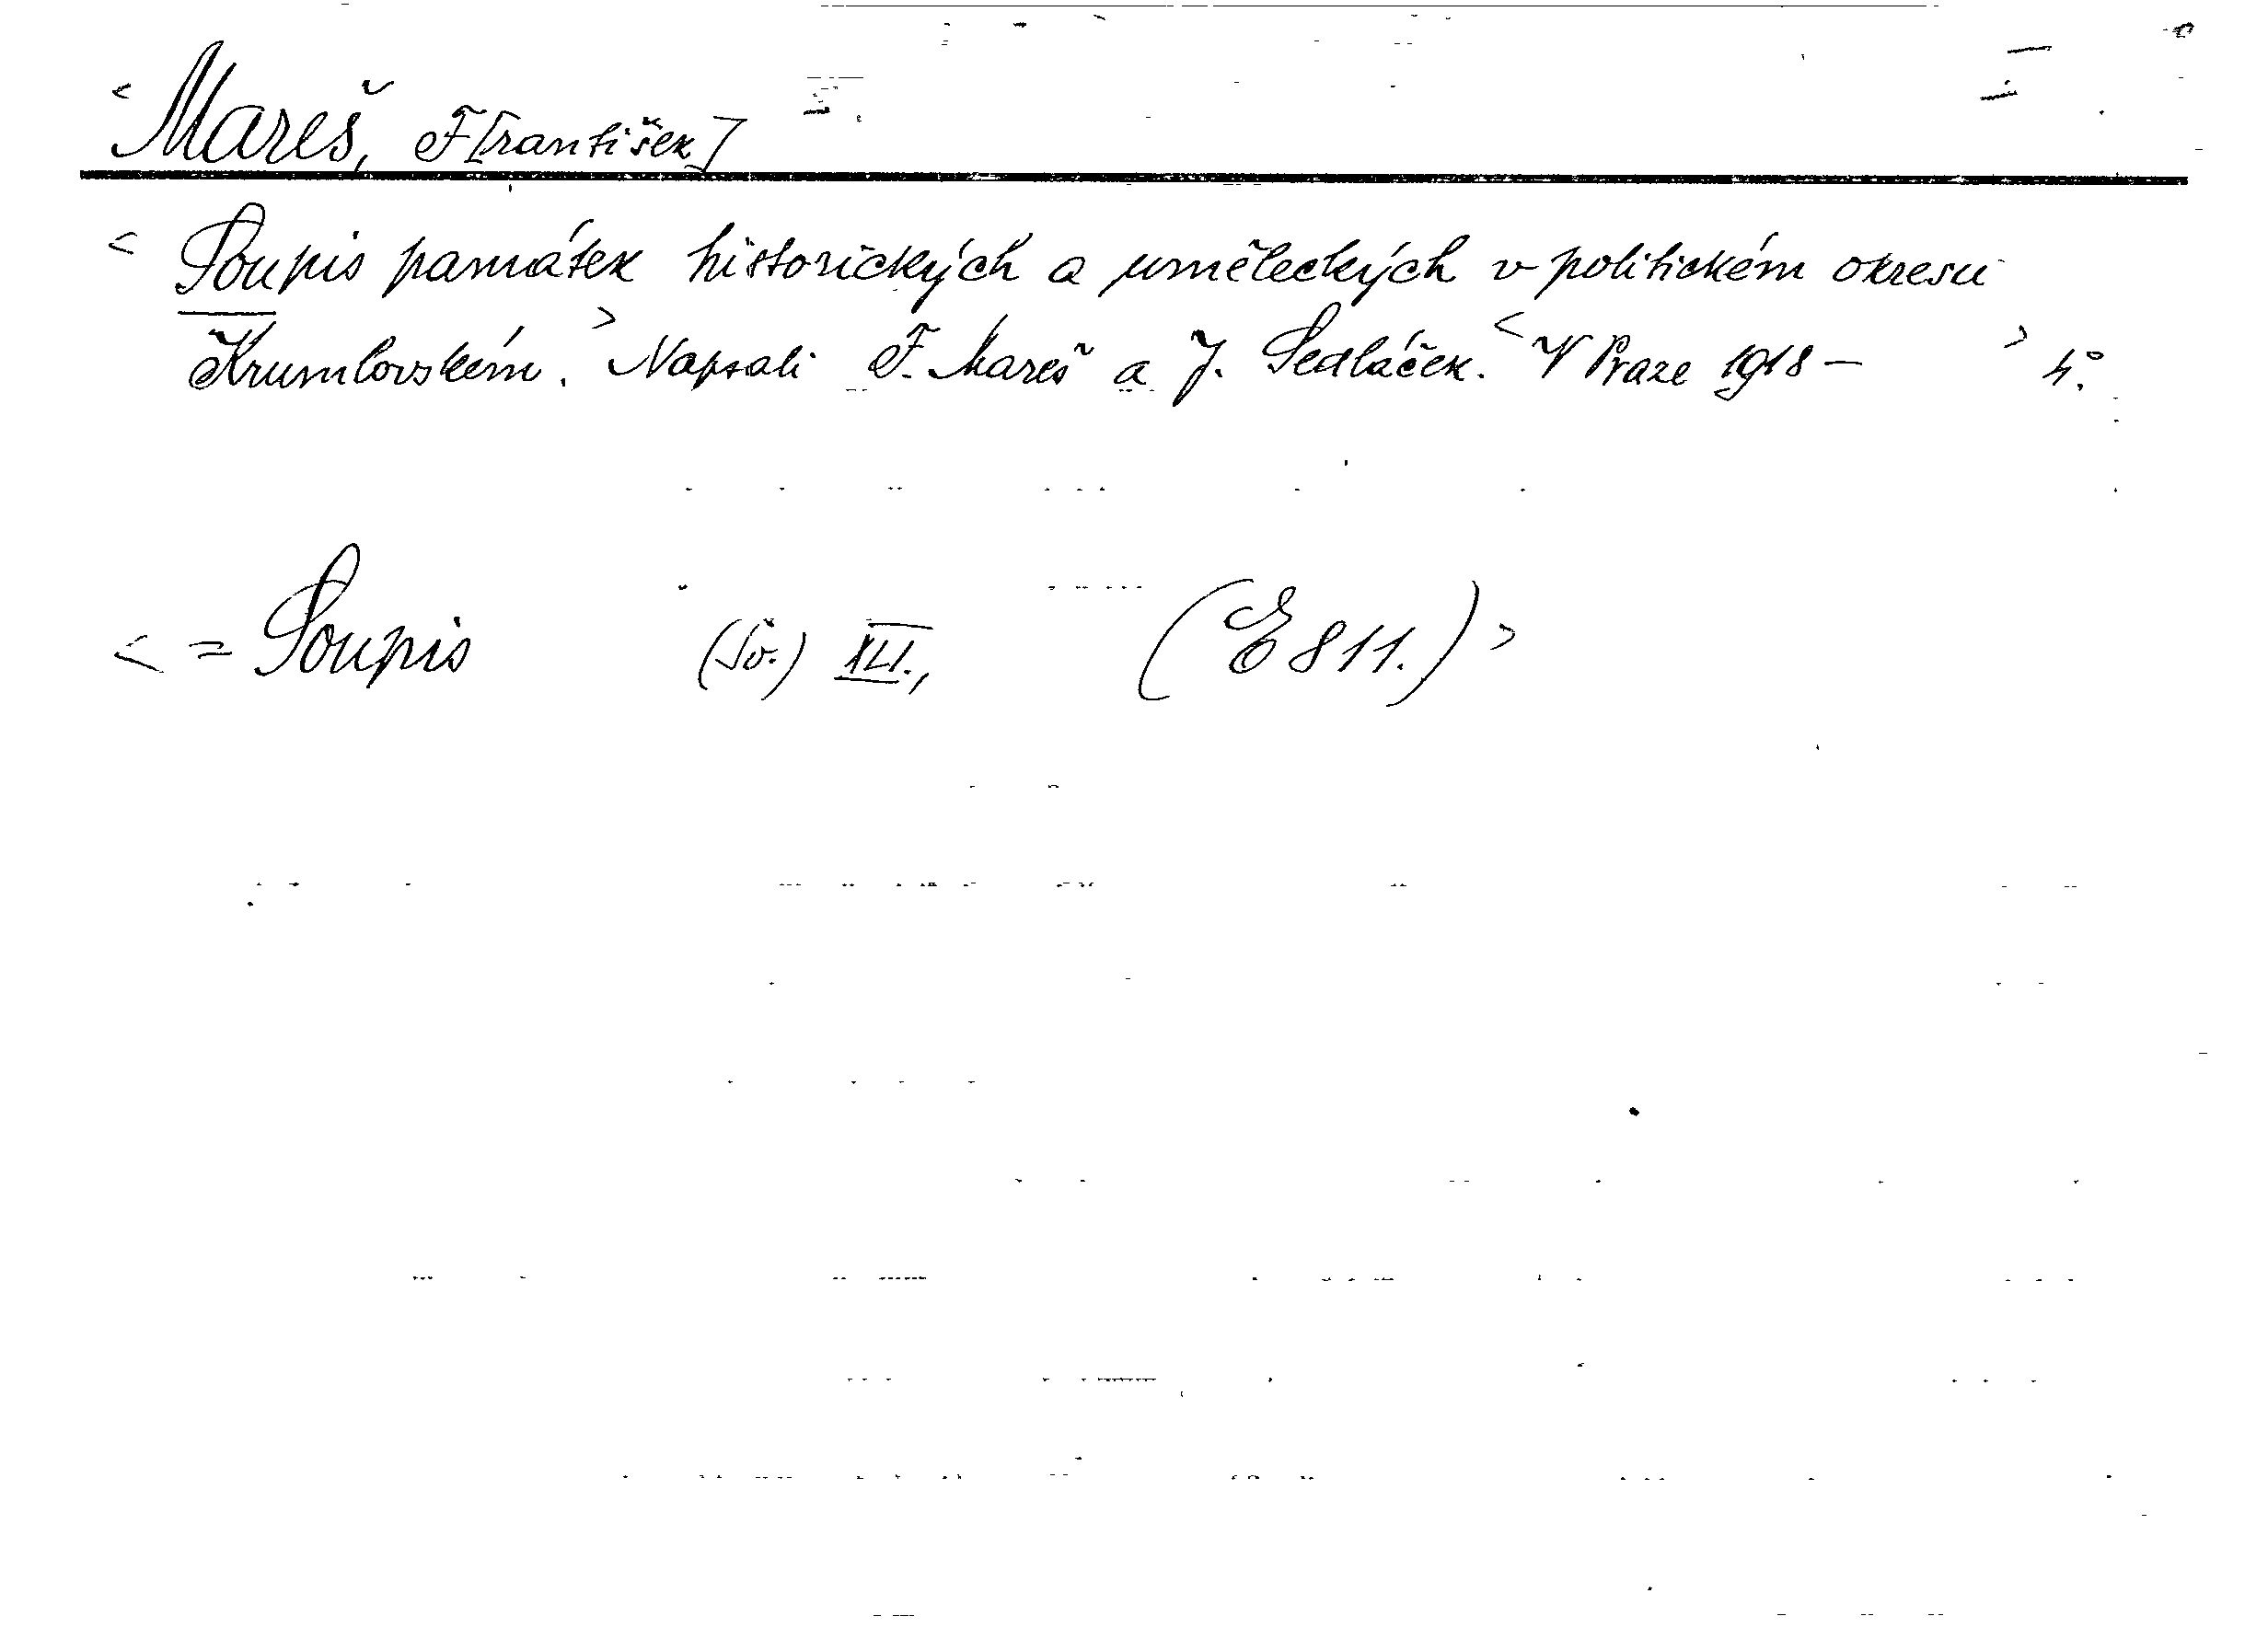 < Mareš, F[rantišek]
< Soupis památek historických a uměleckých v politickém okresu
Krumlovském. > Napsali F. Mareš a J. Sedláček. < V Praze 1918 – > 4°.
< = Soupis (Sv.) XLI., (E 811.) >